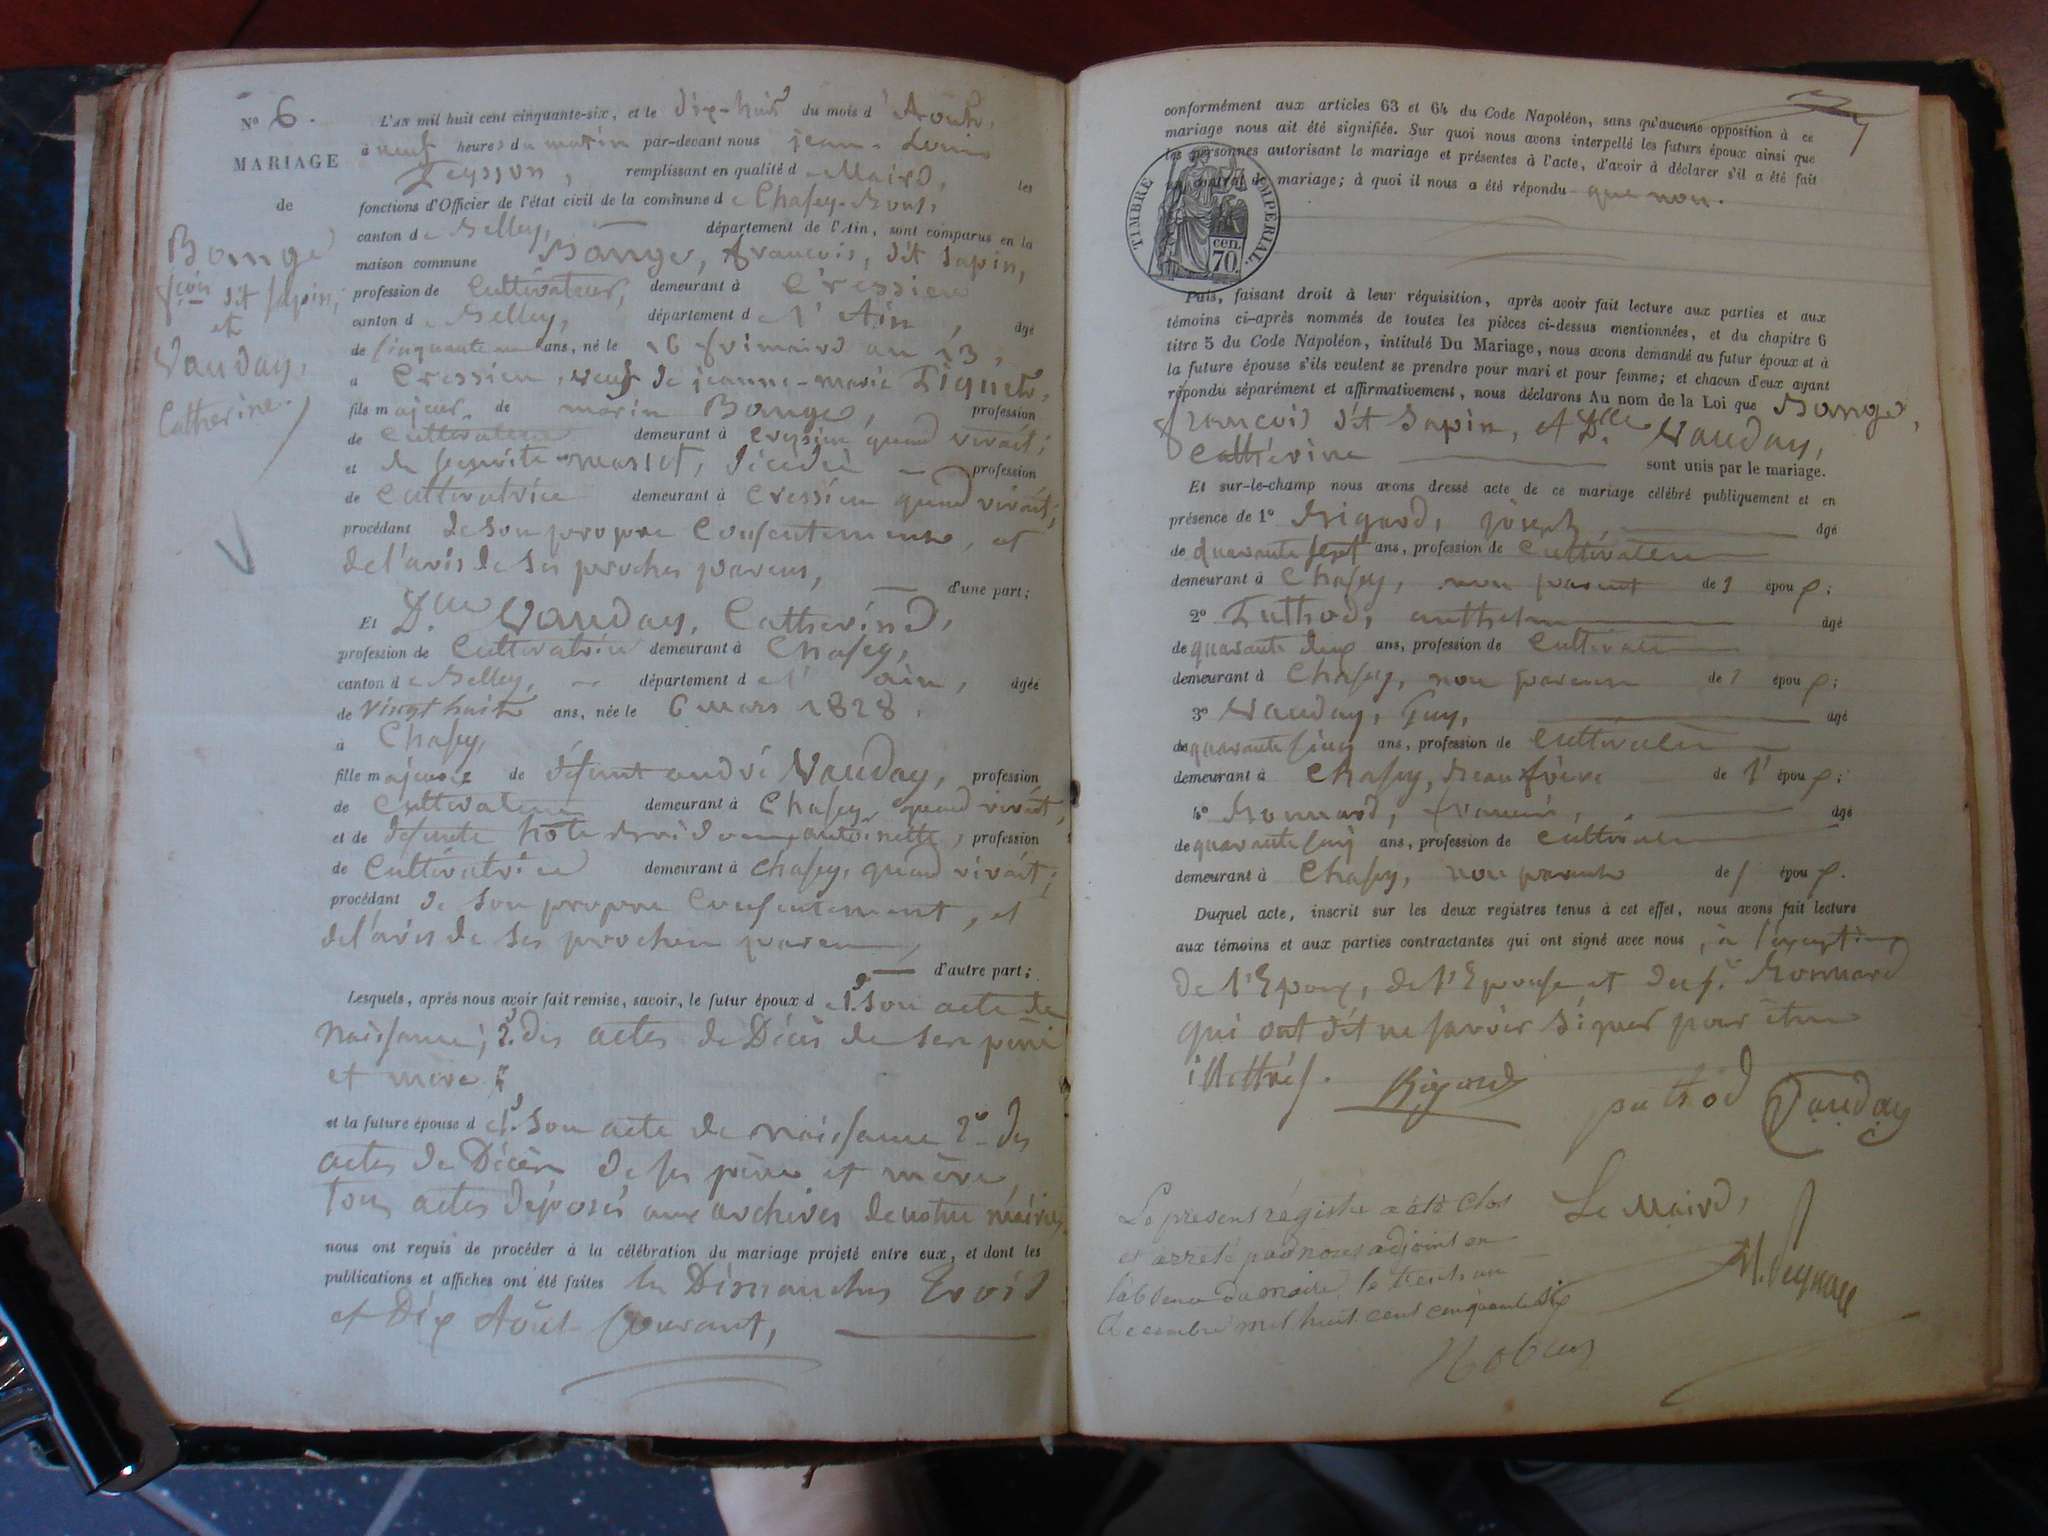 N° 6.
MARIAGE
de
Bonge
fçois dit sapin,
et
Vauday,
Catherine.
L'AN mil huit cent cinquante-six, et le dix-huit du mois d'Août,
à neuf heures du matin par-devant nous jean-Louis
Peysson, remplissant en qualité de Maire, les
fonctions d'Officier de l'état civil de la commune de Chasey-Bons,
canton de Belley, département de l'Ain, sont comparus en la
maison commune Bonge, françois, dit sapin,
profession de cultivateur, demeurant à Cressieu
canton de Belley, département de l'Ain, âgé
de cinquante un ans, né le 16 frimaire an 13,
à Cressieu, veuf de jeanne-marie
fils majeur de marin Bonge, profession
de cultivateur demeurant à cressieu quand vivait;
et de benoite masset, décédée profession
de cultivatrice demeurant à cressieu quand vivait;
procédant de son propre consentement, et
de l'avis de ses proches parens,
d'une part;
Et Dlle Vauday, Catherine,
profession de cultivatrice demeurant à Chasey,
canton de Belley, département de l'ain, âgée
de vingt huit ans, née le 6 mars 1828.
à Chasey,
fille majeure de défunt andré Vauday, profession
de cultivateur demeurant à Chasey quand vivait,
et de défunte antoinette, profession
de cultivatrice demeurant à chasey, quand vivait;
procédant de son propre consentement, et
de l'avis de ses proches parens,
d'autre part;
Lesquels, après nous avoir fait remise, savoir, le futur époux de 1° son acte de
naissance; 2° des actes de Décès de ses père
et mère
et la future épouse de 1° son acte de naissance 2° des
actes de Décès de ses père et mère,
tous actes déposés aux archives de notre mairie,
nous ont requis de procéder à la célébration du mariage projeté entre eux, et dont les
publications et affiches ont été faites les Dimanches trois
et dix Août courant,
conformément aux articles 63 et 64 du Code Napoléon, sans qu'aucune opposition à ce
mariage nous ait été signifiée. Sur quoi nous avons interpellé les futurs époux ainsi que
les personnes autorisant le mariage et présentes à l'acte, d'avoir à déclarer s'il a été fait
un contrat de mariage; à quoi il nous a été répondu que non.
TIMBRE IMPÉRIAL.
cen.
70
Puis, faisant droit à leur réquisition, après avoir fait lecture aux parties et aux
témoins ci-après nommés de toutes les pièces ci-dessus mentionnées, et du chapitre 6
titre 5 du Code Napoléon, intitulé Du Mariage, nous avons demandé au futur époux et à
la future épouse s'ils veulent se prendre pour mari et pour femme; et chacun d'eux ayant
répondu séparément et affirmativement, nous déclarons Au nom de la Loi que Bonge,
françois dit sapin, et Dlle Vauday,
Cathérine sont unis par le mariage.
Et sur-le-champ nous avons dressé acte de ce mariage célébré publiquement et en
présence de 1° Rigard, joseph âgé
de quarante sept ans, profession de cultivateur
demeurant à Chasey, non parent de l'époux;
2° Puthod, anthelme âgé
de quarante deux ans, profession de cultivateur
demeurant à Chasey, non parent de l'époux;
3° Vauday, Guy, âgé
de quarante cinq ans, profession de cultivateur
demeurant à Chasey, Beau frère de l'époux;
4° Bonnard, françois, âgé
de quarante cinq ans, profession de cultivateur
demeurant à Chasey, non parent de l'époux.
Duquel acte, inscrit sur les deux registres tenus à cet effet, nous avons fait lecture
aux témoins et aux parties contractantes qui ont signé avec nous, à l'exception
de l'Epoux, de l'Epouse et du sr. Bonnard
qui ont dit ne savoir signer pour être
illettrés. Rigard puthod Vauday
Le Maire,
Le present régistre a été clos
et arreté par nous adjoint en
l'absence du maire, le trente un
decembre mil huit cent cinquante six